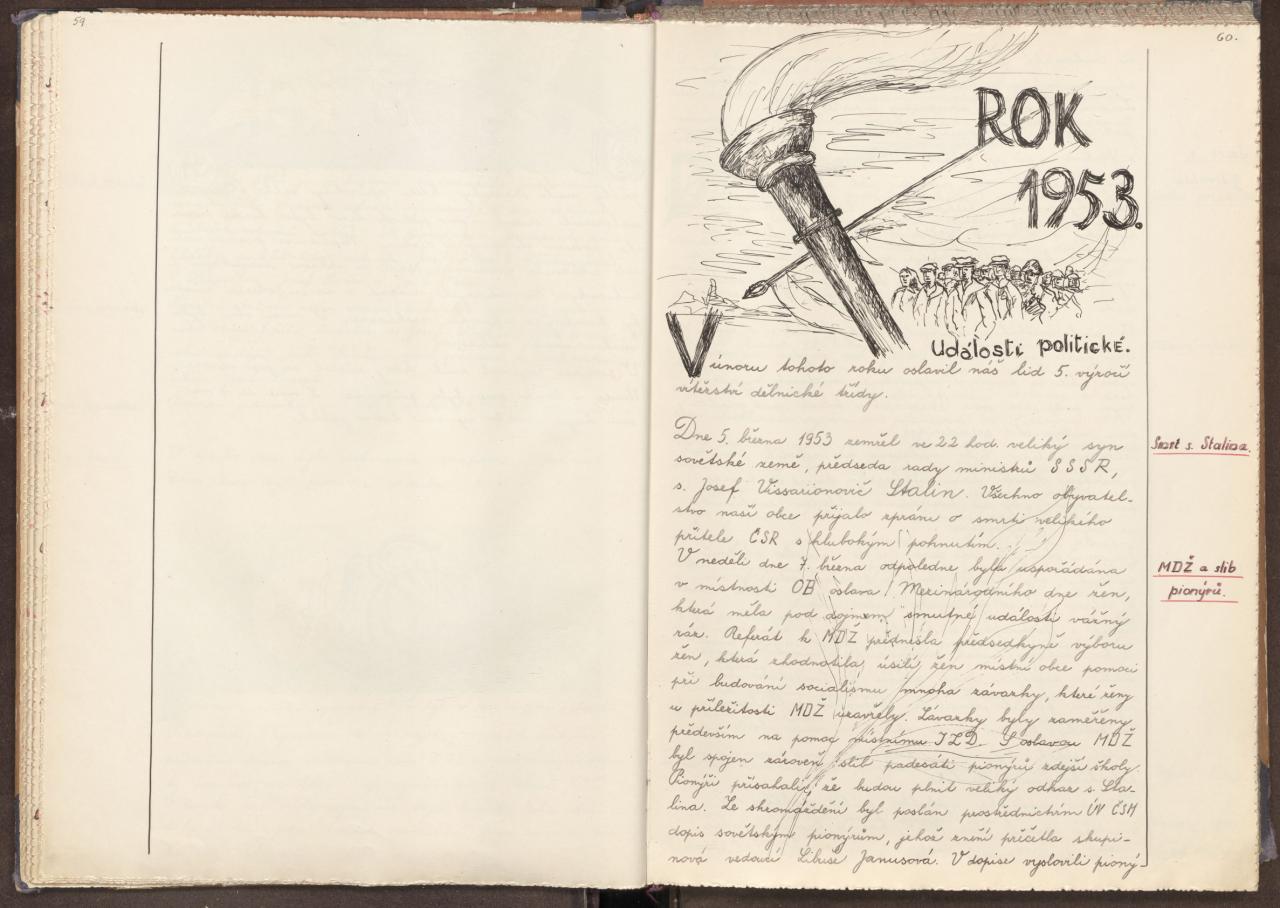 59.
60.
ROK
1953.
Události politické.
V únoru tohoto roku oslavil náš lid 5. výročí
vítězství dělnické třídy.
Dne 5. března 1953 zemřel ve 22 hod. veliký syn
sovětské země, předseda rady ministrů SSSR,
s. Josef Vissarionovič Stalin. Všechno obyvatel-
stvo naší obce přijalo zprávu o smrti velikého
přítele ČSR s hlubokým pohnutím.
Smrt s. Stalina.
V neděli dne 7. března odpoledne byla uspořádána
v místnosti OB oslava Mezinárodního dne žen,
která měla pod dojmem smutné události vážný
ráz. Referát k MDŽ přednesla předsedkyně výboru
žen, která zhodnotila úsilí žen místní obce pomoci
při budování socialismu mnoha závazky, které ženy
u příležitosti MDŽ uzavřely. Závazky byly zaměřeny
především na pomoc místnímu JZD. S oslavou MDŽ
byl spojen zároveň slib padesáti pionýrů zdejší školy.
Pionýři přísahali, že budou plnit veliký odkaz s. Sta-
lina. Ze shromáždění byl poslán prostřednictvím ÚV ČSM
dopis sovětským pionýrům, jehož znění přečetla skupi-
nová vedoucí Libuše Janusová. V dopise vyslovili pioný-
MDŽ a slib
pionýrů.